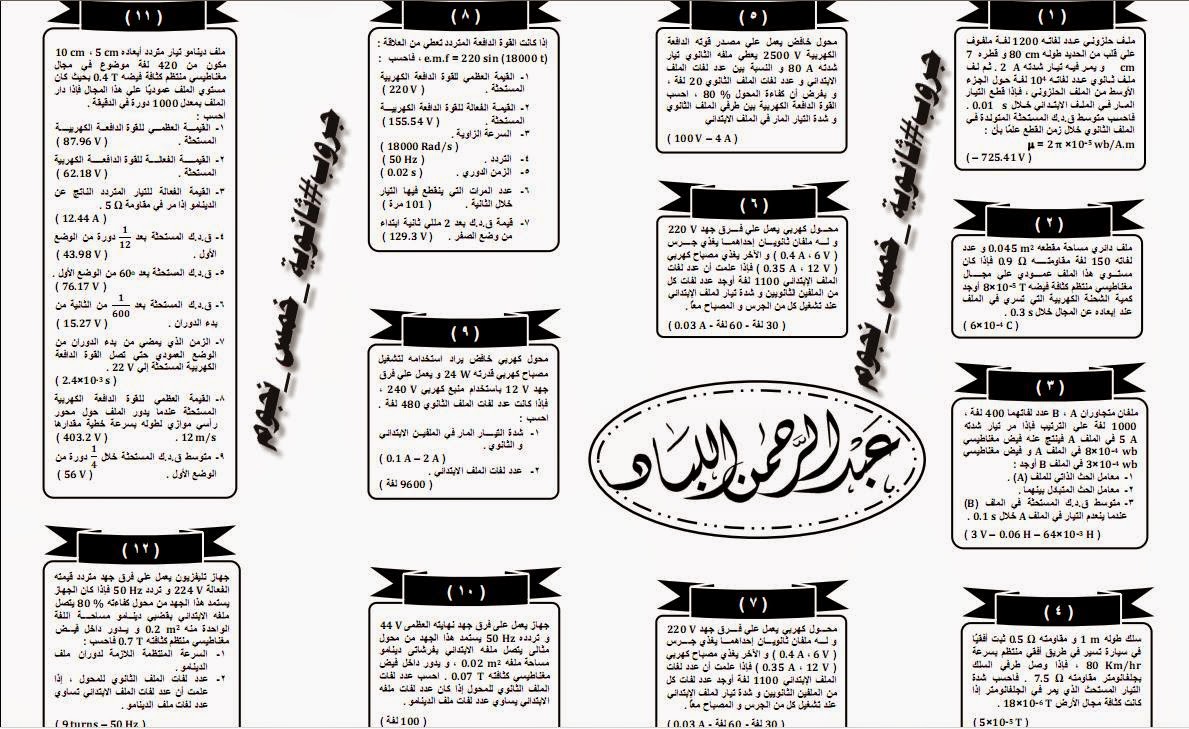 ( ١ )
ملف حلزوني عدد لفاته 1200 لفة ملفوف
علي قلب من الحديد طوله 80 cm و قطره 7
cm و يمر فيه تيار شدته 2 A . ثم لف
ملف ثانوي عدد لفاته 10⁴ لفة حول الجزء
الأوسط من الملف الحلزوني ، فإذا قطع التيار
المار في الملف الابتدائي خلال 0.01 s .
فاحسب متوسط ق.د.ك المستحثة المتولدة في
الملف الثانوي خلال زمن القطع علمًا بأن :
μ = 2 π ×10⁻⁵ wb/A.m
( – 725.41 V )
( ٢ )
ملف دائري مساحة مقطعه 0.045 m² و عدد
لفاته 150 لفة مقاومته 0.9 Ω فإذا كان
مستوي هذا الملف عمودي علي مجال
مغناطيسي منتظم كثافة فيضه 8×10⁻⁵ T أوجد
كمية الشحنة الكهربية التي تسري في الملف
عند إبعاده عن المجال خلال 0.3 s .
( 6×10⁻⁴ C )
( ٣ )
ملفان متجاوران B ، A عدد لفاتهما 400 لفة ،
1000 لفة علي الترتيب فإذا مر تيار شدته
5 A في الملف A فينتج عنه فيض مغناطيسي
8×10⁻⁴ wb في الملف A و فيض مغناطيسي
3×10⁻⁴ wb في الملف B أوجد :
١- معامل الحث الذاتي للملف (A) .
٢- معامل الحث المتبادل بينهما .
٣- متوسط ق.د.ك المستحثة في الملف (B)
عندما ينعدم التيار في الملف A خلال 0.1 s .
( 3 V – 0.06 H – 64×10⁻³ H )
( ٤ )
سلك طوله 1 m و مقاومته 0.5 Ω ثبت أفقيًا
في سيارة تسير في طريق أفقي منتظم بسرعة
80 Km/hr ، فإذا وصل طرفي السلك
بجلفانومتر مقاومته 7.5 Ω . فاحسب شدة
التيار المستحث الذي يمر في الجلفانومتر إذا
كانت كثافة مجال الأرض 18×10⁻⁶ T .
( 5×10⁻⁵ T )
جروب#ثانوية_خمس_نجوم
( ٥ )
محول خافض يعمل علي مصدر قوته الدافعة
الكهربية 2500 V يعطي ملفه الثانوي تيار
شدته 80 A و النسبة بين عدد لفات الملف
الابتدائي و عدد لفات الملف الثانوي 20 لفة ،
و بفرض أن كفاءة المحول % 80 ، احسب
القوة الدافعة الكهربية بين طرفي الملف الثانوي
و شدة التيار المار في الملف الابتدائي
( 100 V – 4 A )
( ٦ )
محول كهربي يعمل علي فرق جهد 220 V
و له ملفان ثانويان إحداهما يغذي جرس
( 0.4 A ، 6 V ) و الآخر يغذي مصباح كهربي
( 0.35 A ، 12 V ) فإذا علمت أن عدد لفات
الملف الابتدائي 1100 لفة أوجد عدد لفات كل
من الملفين الثانويين و شدة تيار الملف الإبتدائي
عند تشغيل كل من الجرس و المصباح معًا .
( 30 لفة - 60 لفة - 0.03 A )
عبد الرحمن اللباد
( ٧ )
محول كهربي يعمل علي فرق جهد 220 V
و له ملفان ثانويان إحداهما يغذي جرس
( 0.4 A ، 6 V ) و الآخر يغذي مصباح كهربي
( 0.35 A ، 12 V ) فإذا علمت أن عدد لفات
الملف الابتدائي 1100 لفة أوجد عدد لفات كل
من الملفين الثانويين و شدة تيار الملف الإبتدائي
عند تشغيل كل من الجرس و المصباح معًا .
( 30 لفة - 60 لفة - 0.03 A )
( ٨ )
إذا كانت القوة الدافعة المتردد تعطي من العلاقة :
e.m.f = 220 sin (18000 t) ، فاحسب :
١- القيمة العظمي للقوة الدافعة الكهربية
المستحثة . ( 220 V )
٢- القيمة الفعالة للقوة الدافعة الكهربية
المستحثة . ( 155.54 V )
٣- السرعة الزاوية .
( 18000 Rad/s )
٤- التردد . ( 50 Hz )
٥- الزمن الدوري . ( 0.02 s )
٦- عدد المرات التي ينقطع فيها التيار
خلال الثانية . ( 101 مرة )
٧- قيمة ق.د.ك بعد 2 مللي ثانية ابتداء
من وضع الصفر . ( 129.3 V )
( ٩ )
محول كهربي خافض يراد استخدامه لتشغيل
مصباح كهربي قدرته 24 W و يعمل علي فرق
جهد 12 V باستخدام منبع كهربي 240 V ،
فإذا كانت عدد لفات الملف الثانوي 480 لفة .
احسب :
١- شدة التيار المار في الملفين الابتدائي
و الثانوي .
( 0.1 A – 2 A )
٢- عدد لفات الملف الابتدائي .
( 9600 لفة )
( ١٠ )
جهاز يعمل علي فرق جهد نهايته العظمى 44 V
و تردده 50 Hz يستمد هذا الجهد من محول
مثالي يتصل ملفه الابتدائي بفرشاتي دينامو
مساحة ملفه 0.02 m² ، و يدور داخل فيض
مغناطيسي كثافته 0.07 T . احسب عدد لفات
الملف الثانوي للمحول إذا كان عدد لفات ملفه
الابتدائي يساوي عدد لفات ملف الدينامو .
( 100 لفة )
جروب#ثانوية_خمس_نجوم
( ١١ )
ملف دينامو تيار متردد أبعاده 10 cm ، 5 cm
مكون من 420 لفة موضوع في مجال
مغناطيسي منتظم كثافة فيضه 0.4 T بحيث كان
مستوي الملف عموديًا علي هذا المجال فإذا دار
الملف بمعدل 1000 دورة في الدقيقة .
احسب :
١- القيمة العظمي للقوة الدافعة الكهربية
المستحثة . ( 87.96 V )
٢- القيمة الفعالة للقوة الدافعة الكهربية
المستحثة . ( 62.18 V )
٣- القيمة الفعالة للتيار المتردد الناتج عن
الدينامو إذا مر في مقاومة 5 Ω .
( 12.44 A )
٤- ق.د.ك المستحثة بعد 1/12 دورة من الوضع
الأول . ( 43.98 V )
٥- ق.د.ك المستحثة بعد 60° من الوضع الأول .
( 76.17 V )
٦- ق.د.ك المستحثة بعد 1/600 من الثانية من
بدء الدوران . ( 15.27 V )
٧- الزمن الذي يمضي من بدء الدوران من
الوضع العمودي حتي تصل القوة الدافعة
الكهربية المستحثة إلي 22 V .
( 2.4×10⁻³ s )
٨- القيمة العظمي للقوة الدافعة الكهربية
المستحثة عندما يدور الملف حول محور
رأسي موازي لطوله بسرعة خطية مقدارها
12 m/s . ( 403.2 V )
٩- متوسط ق.د.ك المستحثة خلال 1/4 دورة من
الوضع الأول . ( 56 V )
( ١٢ )
جهاز تليفزيون يعمل علي فرق جهد متردد قيمته
الفعالة 224 V و تردد 50 Hz فإذا كان الجهاز
يستمد هذا الجهد من محول كفاءته % 80 يتصل
ملفه الابتدائي بقضبي دينامو مساحة اللفة
الواحدة منه 0.2 m² و يدور داخل فيض
مغناطيسي منتظم كثافته 0.7 T فاحسب :
١- السرعة المنتظمة اللازمة لدوران ملف
الدينامو .
٢- عدد لفات الملف الثانوي للمحول ، إذا
علمت أن عدد لفات الملف الابتدائي تساوي
عدد لفات ملف الدينامو .
( 9 turns – 50 Hz )